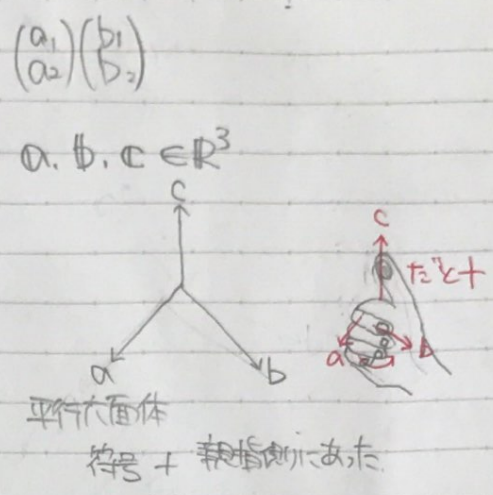 (a₁ a₂)(b₁ b₂)
a, b, c ∈ ℝ³
c
a
b
c
だと+
a
b
平行六面体
符号 + 親指側にあった